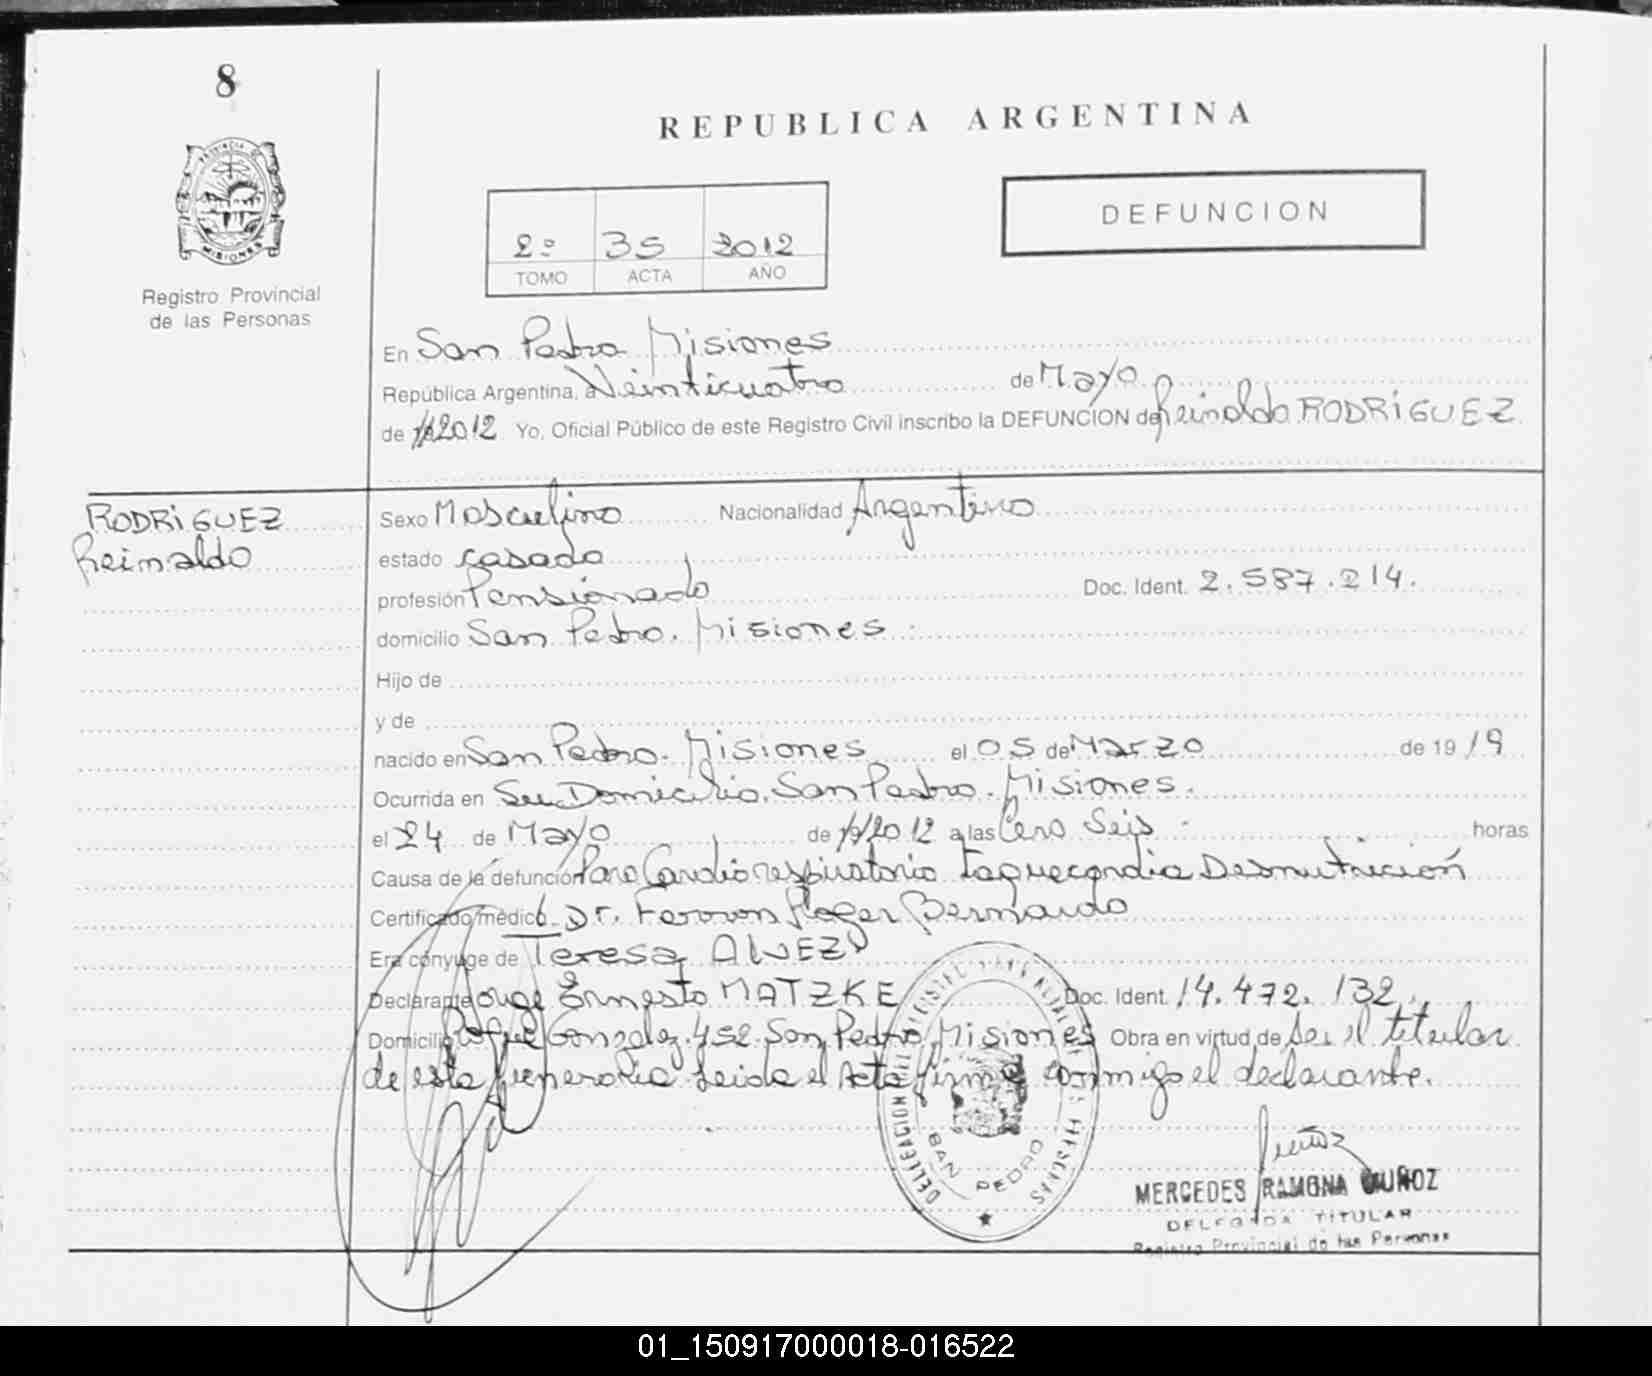 8
REPUBLICA ARGENTINA
PROVINCIA DE
MISIONES
DEFUNCION
2º 35 2012
TOMO ACTA AÑO
Registro Provincial
de las Personas
En San Pedro Misiones
República Argentina, a Veinticuatro de Mayo
de 2012 Yo, Oficial Público de este Registro Civil inscribo la DEFUNCION de Reinaldo RODRIGUEZ
RODRIGUEZ
Reinaldo
Sexo Masculino Nacionalidad Argentino
estado casado
profesión Pensionado Doc. Ident. 2.587.214.
domicilio San Pedro. Misiones.
Hijo de
y de
nacido en San Pedro. Misiones el 05 de Marzo de 19 19
Ocurrida en Su Domicilio. San Pedro. Misiones.
el 24 de Mayo de 2012 a las Cero Seis horas
Causa de la defunción Paro Cardiorespiratorio Taquecardia Desnutrición
Certificado médico Dr. Roger Bernardo
Era cónyuge de Teresa ALVEZ
Declarante Jorge Ernesto MATZKE Doc. Ident. 14.472.132.
Domicilio Roque Gonzalez. 452. San Pedro. Misiones Obra en virtud de Ser el titular
de esta funeraria. Leida el Acta firma conmigo el declarante.
SAN PEDRO
MERCEDES RAMONA MUÑOZ
DELEGADA TITULAR
Registro Provincial de las Personas
01_150917000018-016522